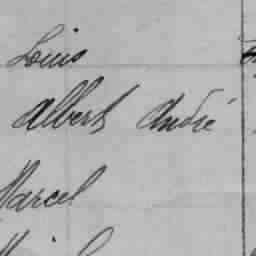 Louis
Albert André
Marcel